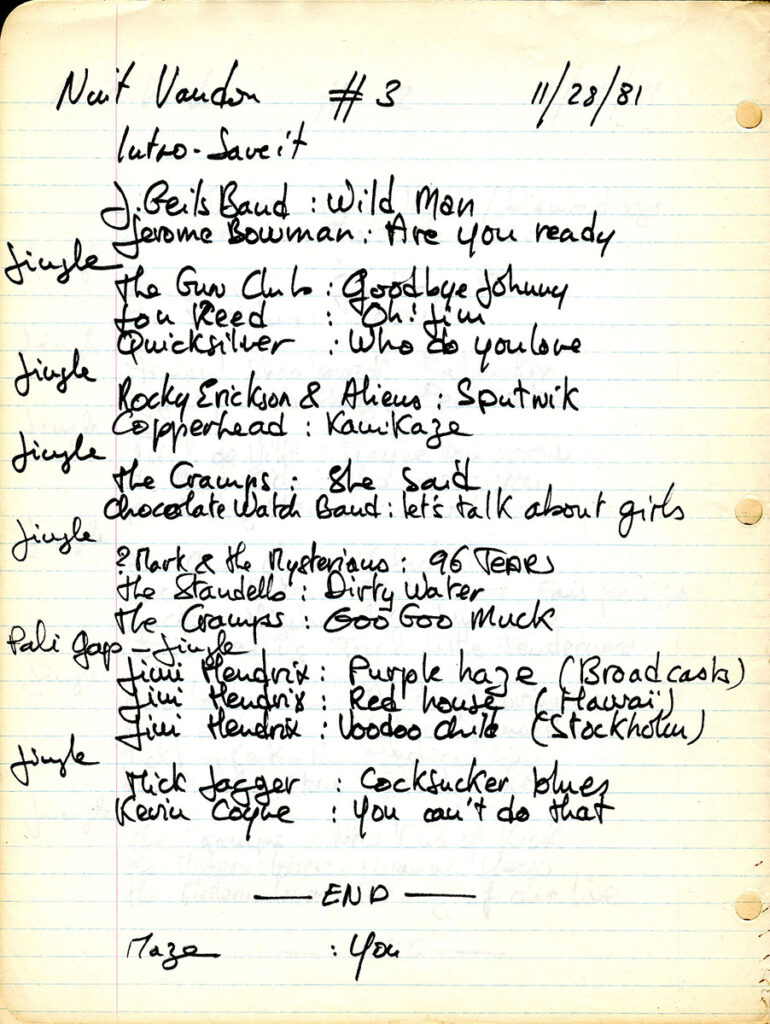 Nuit Vaudou #3 11/28/81
Intro - Save it
J. Geils Band : Wild Man
Jerome Bowman : Are you ready
Jingle
The Gun Club : Goodbye Johnny
Lou Reed : Oh! Jim
Quicksilver : Who do you love
Jingle
Rocky Erickson & Aliens : Sputnik
Copperhead : Kamikaze
Jingle
The Cramps : She Said
Chocolate Watch Band : let's talk about girls
Jingle
? Mark & the Mysterians : 96 TEARS
The Standells : Dirty Water
The Cramps : Goo Goo Muck
Pali Gap - Jingle
Jimi Hendrix : Purple haze (Broadcasts)
Jimi Hendrix : Red house (Hawaï)
Jimi Hendrix : Voodoo child (Stockholm)
Jingle
Mick Jagger : Cocksucker blues
Kevin Coyne : You can't do that
— END —
Maze : You